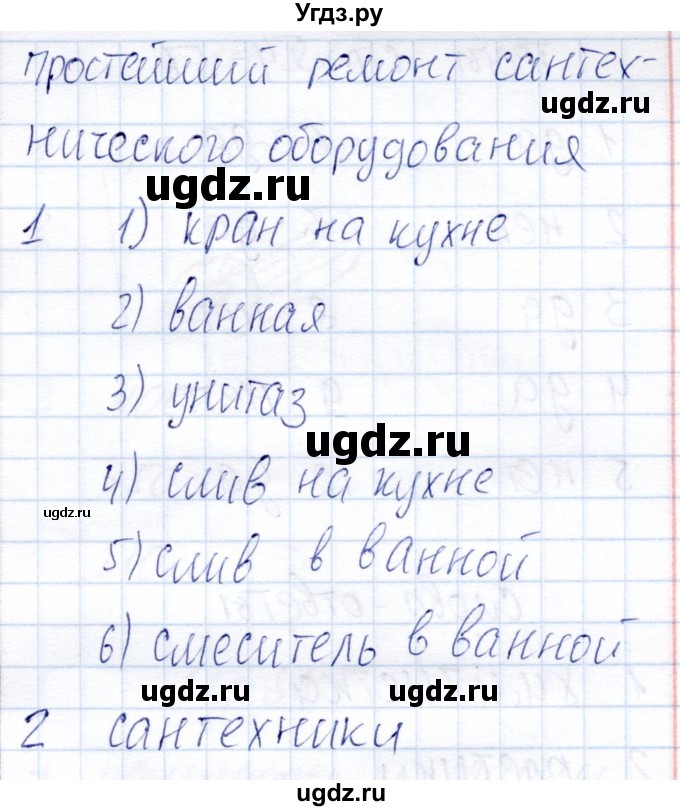 Угдз.ру
простейший ремонт сантех-
ugdz.ru
нического оборудования
ugdz.ru
1 1) кран на кухне
2) ванная
3) унитаз
ugdz.ru
4) слив на кухне
ugdz.ru
5) слив в ванной
6) смеситель в ванной
ugdz.ru ugdz.ru
2 сантехники
ugdz.ru